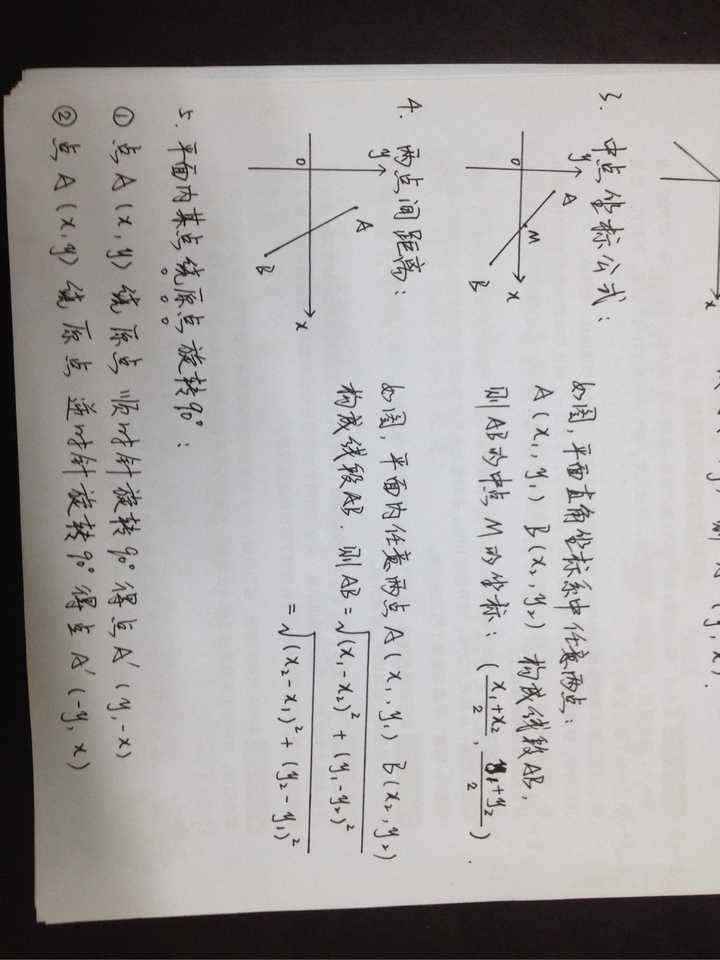 (y, x).
x
3. 中点坐标公式:
y
A
O
M
x
B
如图, 平面直角坐标系中任意两点:
A(x₁, y₁) B(x₂, y₂) 构成线段AB,
则AB的中点M的坐标: (\frac{x₁+x₂}{2}, \frac{y₁+y₂}{2}).
4. 两点间距离:
y
A
O
x
B
如图, 平面内任意两点A(x₁, y₁) B(x₂, y₂)
构成线段AB. 则AB=√((x₁-x₂)²+(y₁-y₂)²)
=√((x₂-x₁)²+(y₂-y₁)²)
5. 平面内某点绕原点旋转90°:
① 点A(x, y) 绕原点 顺时针旋转90°得点A'(y, -x)
② 点A(x, y) 绕原点 逆时针旋转90°得点A'(-y, x)